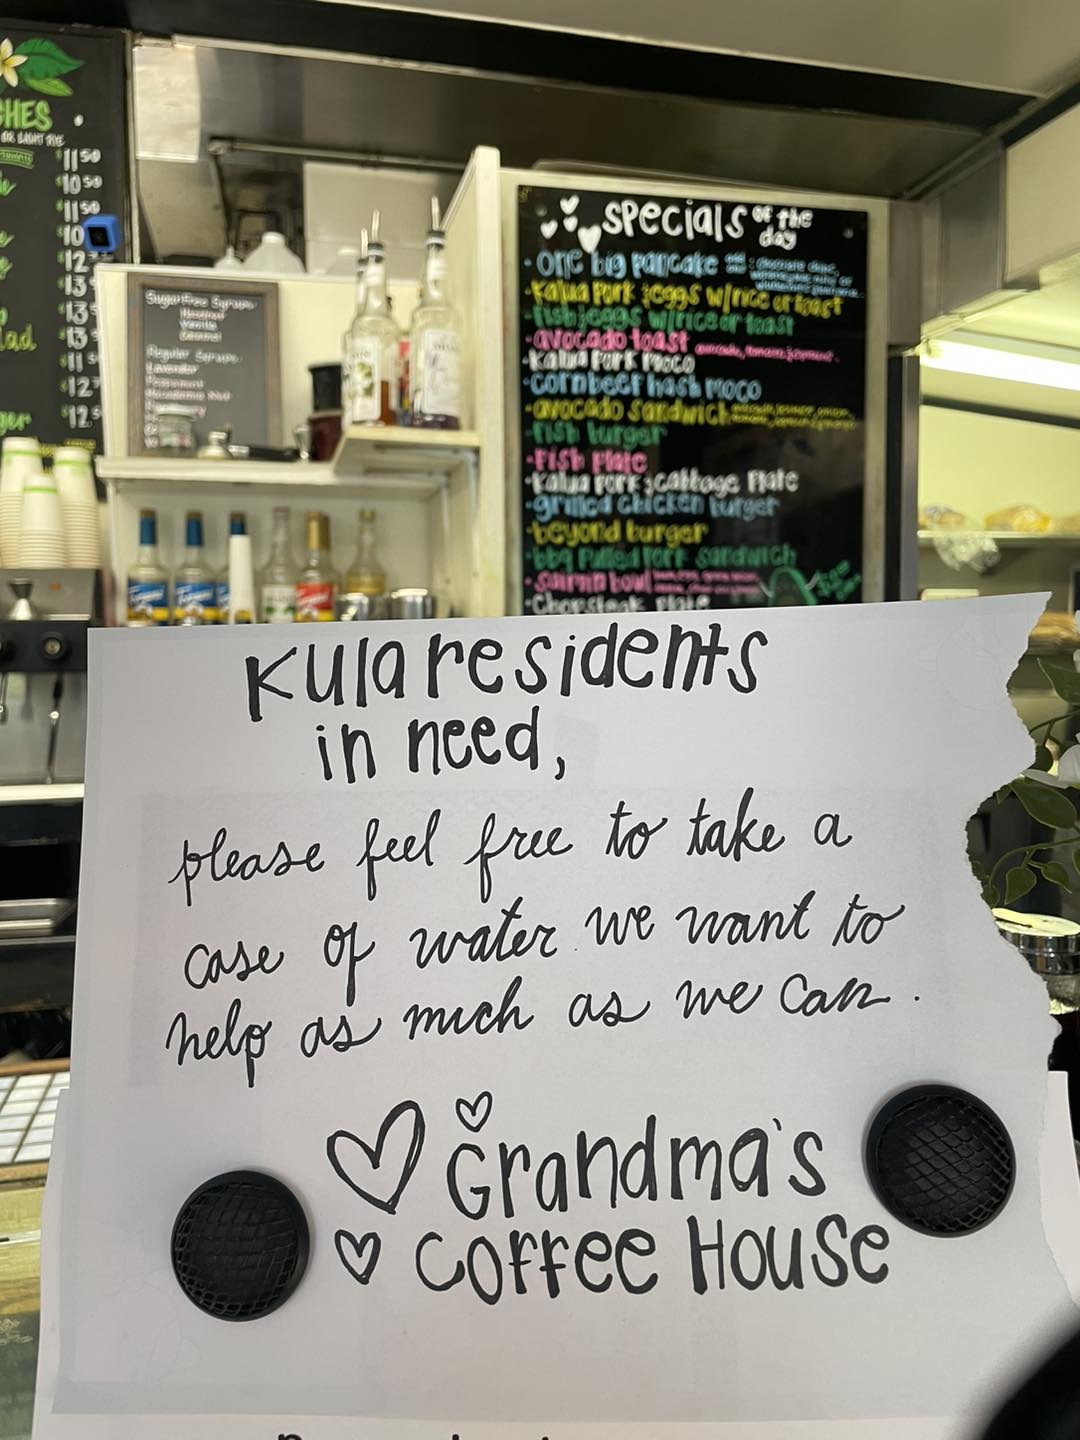 CHES
OR LIGHT RYE
11 50
10 50
11 50
10
12
13
13
lad 13
11
12
ger 12.5
Sugar Free Syrups
Vanilla
Regular Syrups
Lavender
Macadamia Nut
specials of the day
· One big pancake
· Kalua Pork & eggs w/rice or toast
· Fish & eggs w/rice or toast
· avocado toast
· Kalua Pork Moco
· corn beef hash moco
· avocado sandwich
· Fish burger
· Fish Plate
· Kalua Pork & cabbage Plate
· grilled chicken burger
· beyond burger
· bbq Pulled Pork sandwich
· saimin bowl
· Chop steak Plate
Kula residents
in need,
please feel free to take a
case of water we want to
help as much as we can.
Grandma's
Coffee House